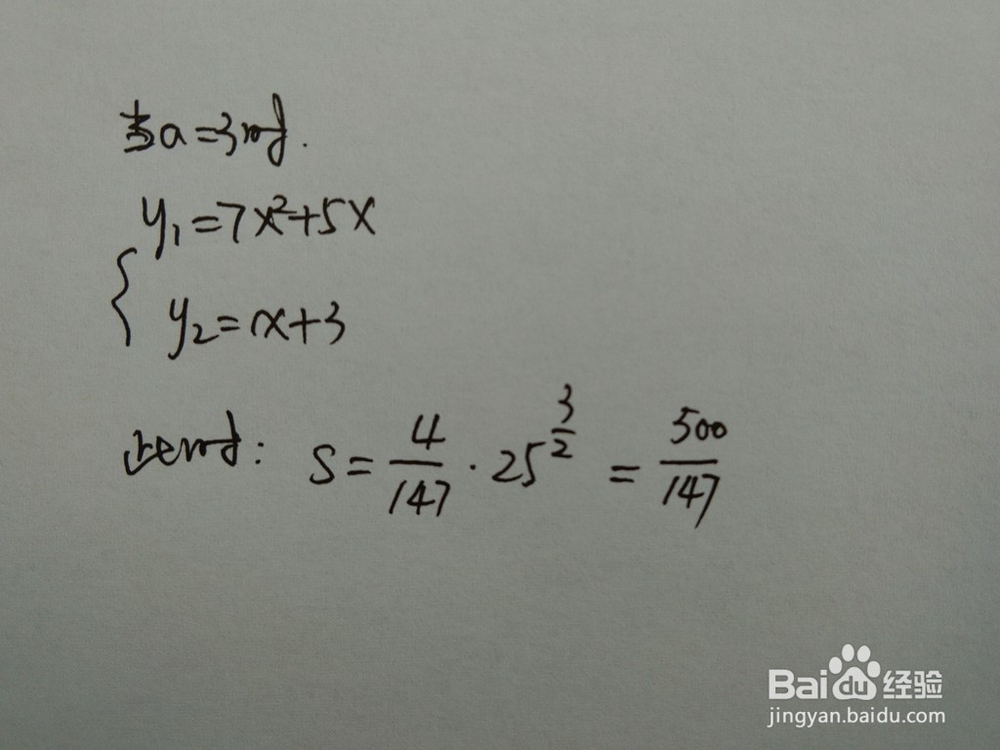 当a=3时.
y₁=7x²+5x
{
y₂=x+3
此时: S=4/147·25^(3/2)=500/147
Baidu经验
jingyan.baidu.com